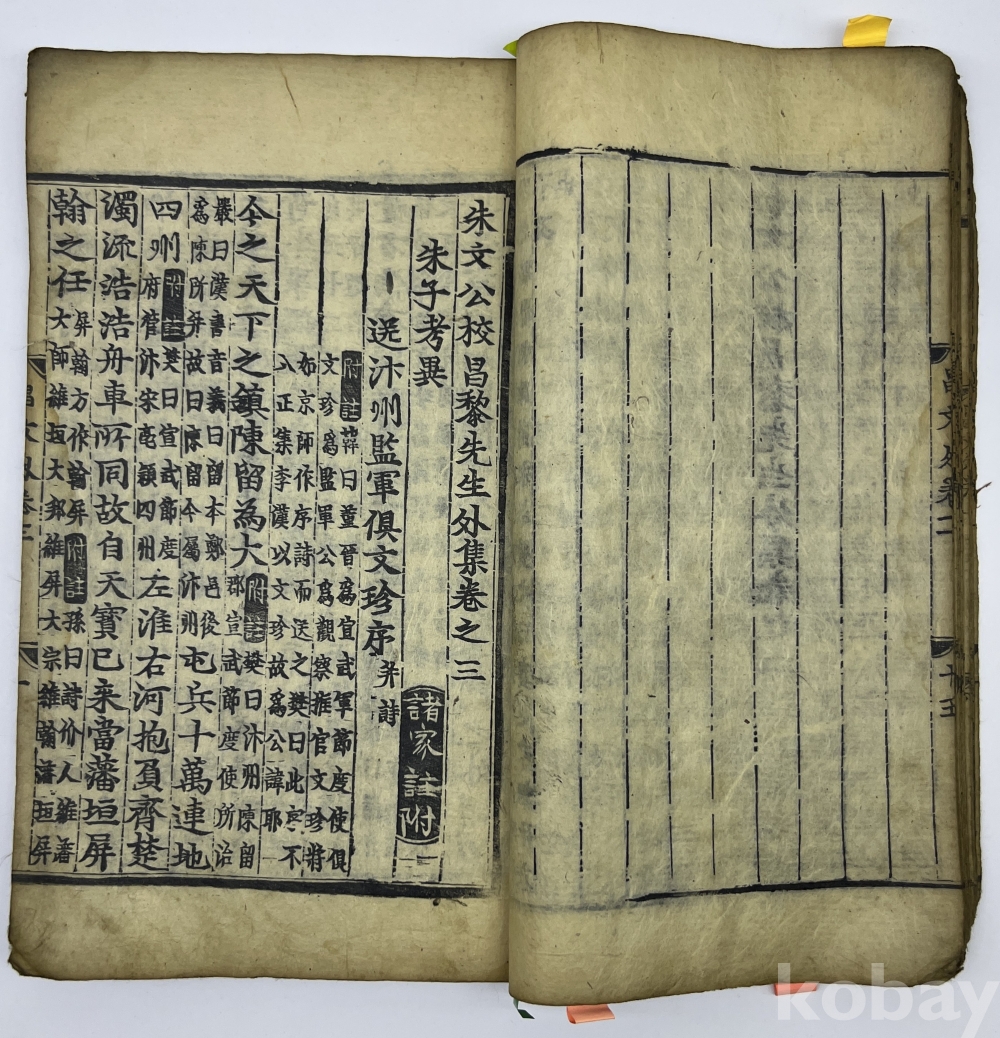 昌文外卷二
十五
朱文公校昌黎先生外集卷之三
朱子考異 諸家註附
送汴州監軍俱文珍序 并詩
附註韓曰董晉爲宣武軍節度使俱
文珍爲監軍公爲觀察推官文珍將
如京師作序詩而送之樊曰此序不
入正集李漢以文珍故爲公諱耶
今之天下之鎮陳留為大 附註樊曰汴州陳留
郡宣武節度使所治
嚴曰漢書音義曰留本鄭邑後
爲陳所并故曰陳留今屬汴州 屯兵十萬連地
四州 附註樊曰宣武節度
府管汴宋亳潁四州 左淮右河抱負齊楚
濁流浩浩舟車所同故自天寶已来當藩垣屏
翰之任 屏翰方作翰屏 附註孫曰詩价人維藩
大師維垣大邦維屏大宗維翰藩垣屏
kobay